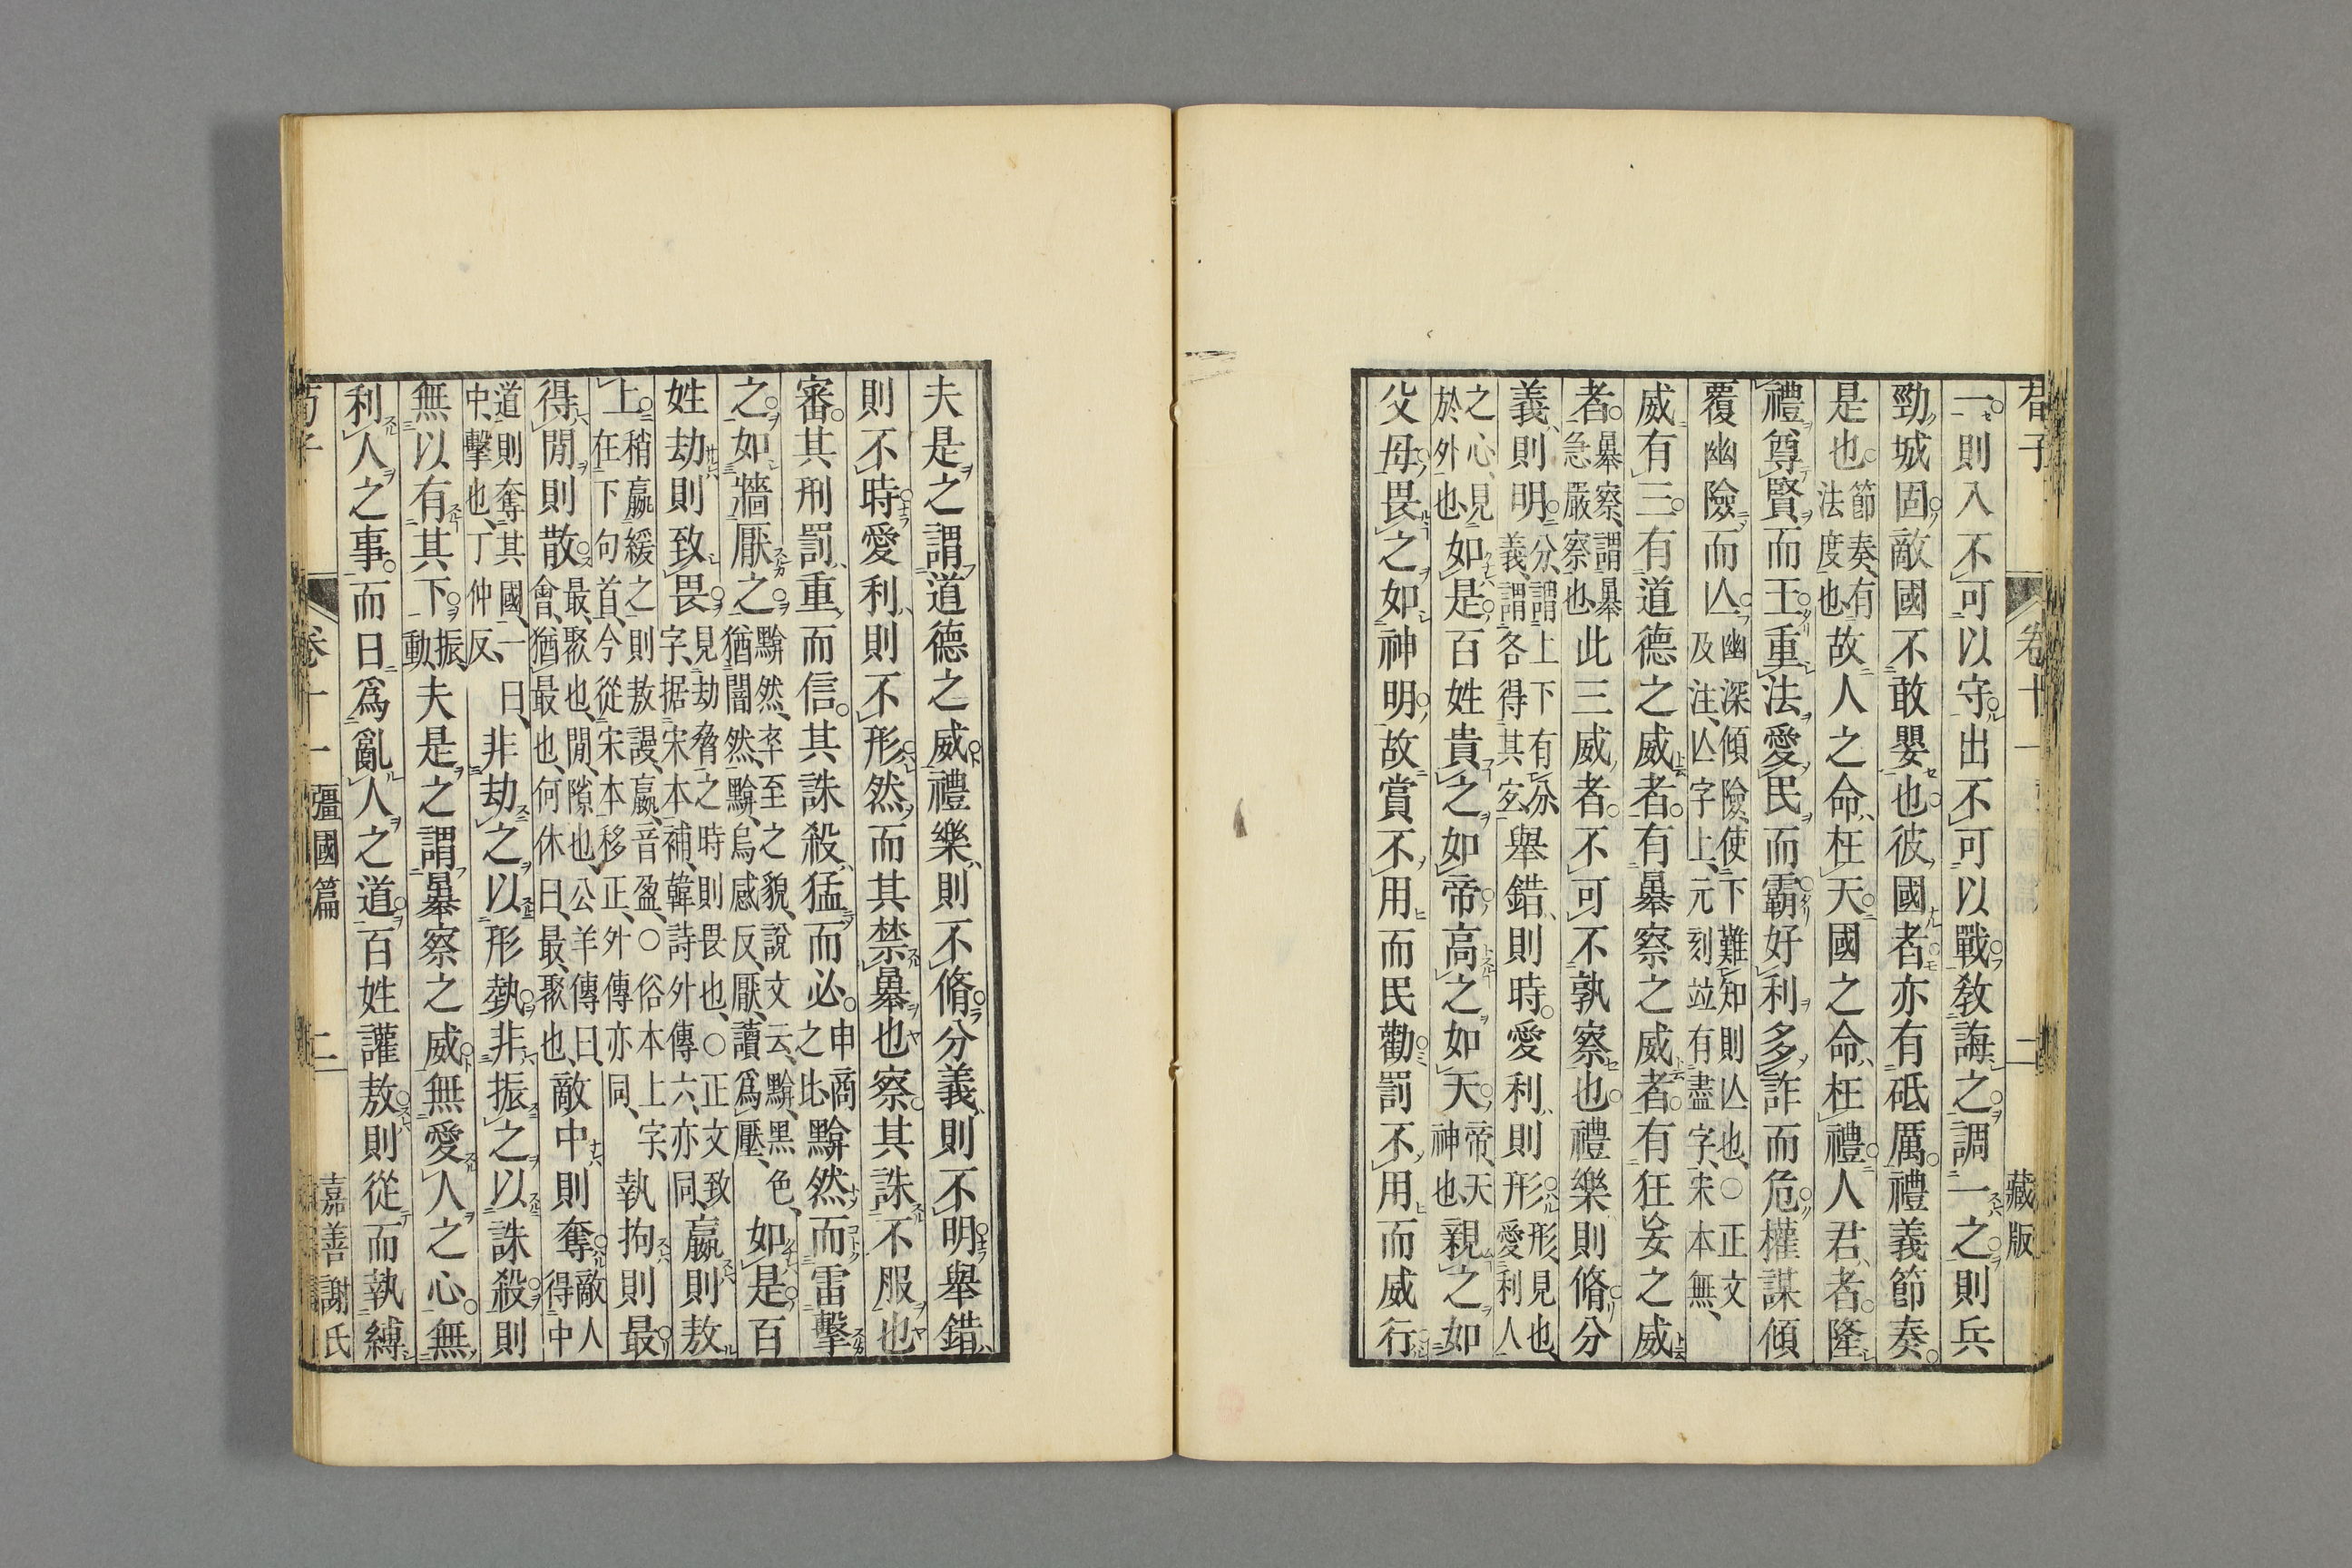 荀子 卷十一 二 藏版
一則入不可以守出不可以戰教誨之調一之則兵
勁城固敵國不敢嬰也彼國者亦有砥厲禮義節奏
是也節奏、有法度也、故人之命、枉天國之命、枉禮人君、者隆
禮、尊賢而王重法愛民而霸好利多詐而危權謀傾
覆幽險而亾幽深傾險、使下難知則亾也、○正文及注、亾字上、元刻竝有盡字、宋本無、
威有三有道德之威者有㬥察之威者有狂妄之威
者㬥察、謂㬥急嚴察也、此三威者不可不孰察也禮樂則脩分
義則明分、謂上下有分、義、謂各得其宐、舉錯、則時愛利則形形、見也、愛利人
之心、見於外也、如是百姓貴之如帝高之如天帝、天神也、親之如
父母畏之如神明故賞不用而民勸罰不用而威行
夫是之謂道德之威禮樂、則不脩分義、則不明舉錯、
則不時愛利、則不形然而其禁㬥也察其誅不服也
審其刑罰、重而信其誅殺、猛而必申商之比、黭然而雷擊
之如牆厭之黭然、卒至之貌、說文云、黭、黑色、猶闇然、黭、烏感反、厭、讀爲壓、如是百
姓劫則致畏見劫脅之時則畏也、○正文致字、据宋本補、韓詩外傳六、亦同、嬴則敖
上稍嬴緩之則敖謾、嬴、音盈、○俗本上字、在下句首、今從宋本移正、外傳亦同、執拘則最
得閒則散最、聚也、閒、隙也、公羊傳曰、會、猶最也、何休曰、最、聚也、敵中則奪敵人得中
道則奪其國、一曰、中、擊也、丁仲反、非劫之以形埶非振之以誅殺則
無以有其下振、動、夫是之謂㬥察之威無愛人之心無
利人之事而日爲亂人之道百姓讙敖則從而執縛
荀子 卷十一 彊國篇 二 嘉善謝氏